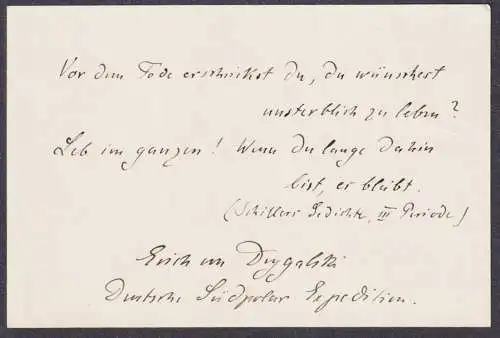 Vor dem Tode erschrickst du, du wünschest
unsterblich zu leben?
Leb im ganzen! Wenn du lange dahin
bist, es bleibt.
(Schillers Gedichte, III Periode)
Erich von Drygalski
Deutsche Südpolar Expedition.